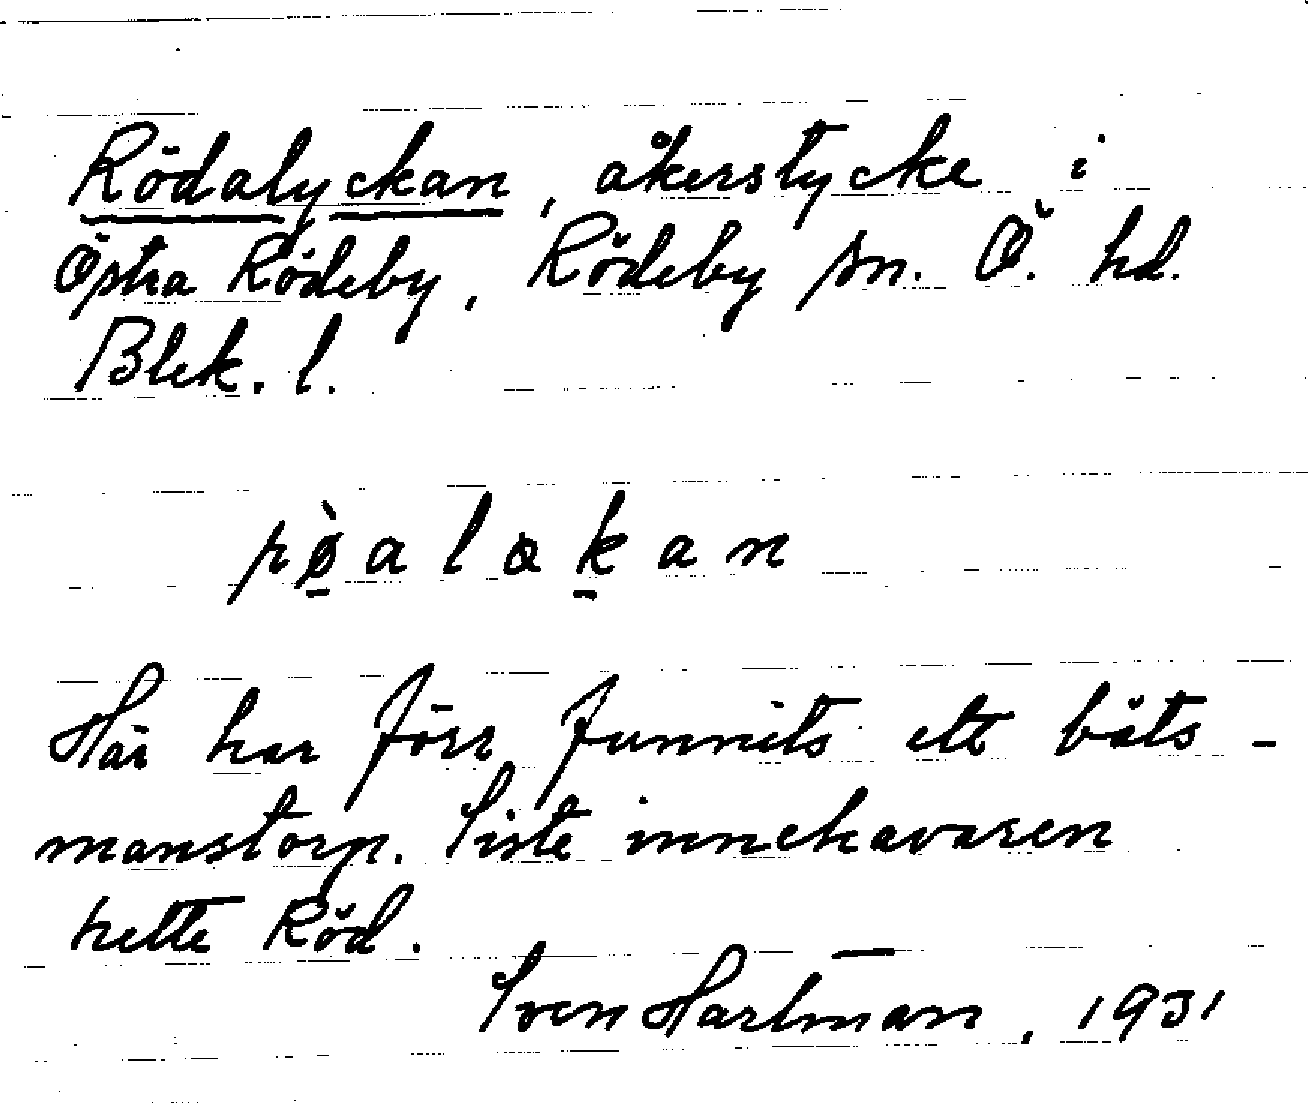 Rödalyckan, åkerstycke i
Östra Rödeby, Rödeby sn. Ö. hd.
Blek. l.
Här har förr funnits ett båts-
manstorp. Siste innehavaren
hette Röd.
Sven Hartman, 1931